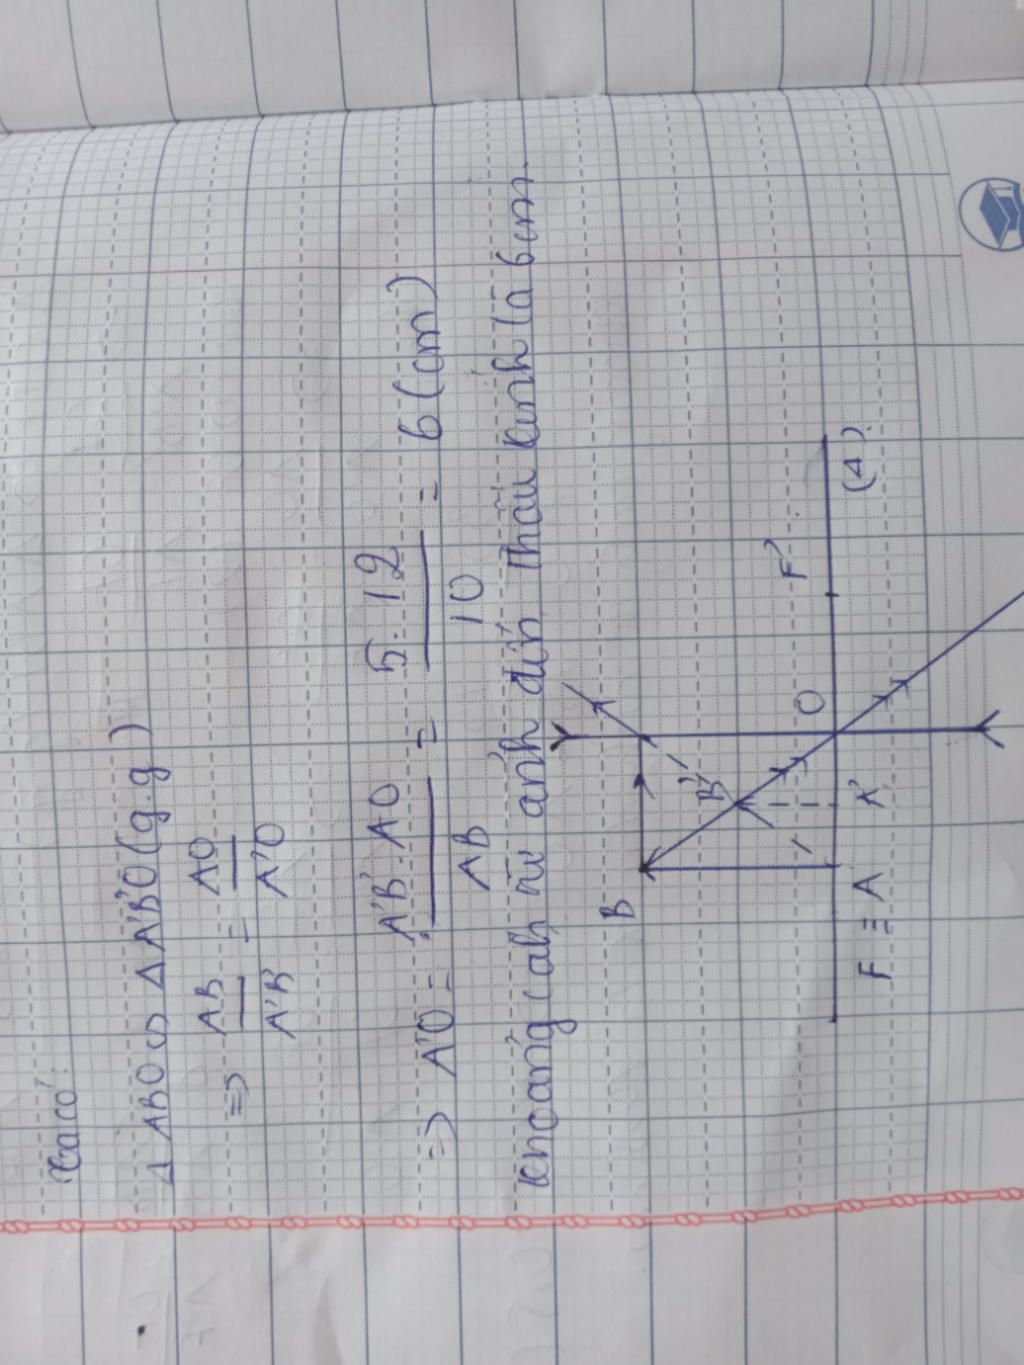 Ta có:
Δ ABO ∽ Δ A'B'O (g.g)
=> AB/A'B' = AO/A'O
=> A'O = A'B'.AO/AB = 5.12/10 = 6 (cm)
khoảng cách từ ảnh đến thấu kính là 6cm.
B
B'
O
F'
F ≡ A
A'
(Δ)